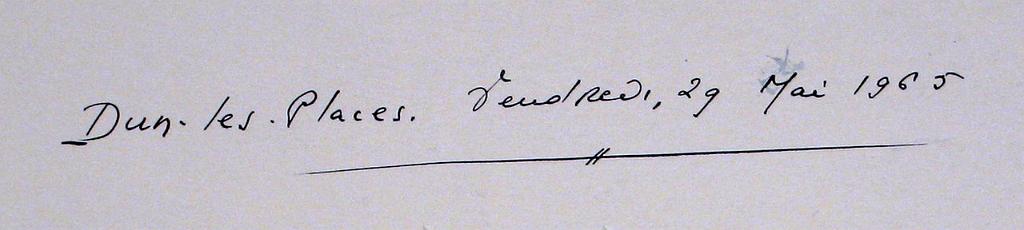 Dun-les-Places. Vendredi, 29 Mai 1965